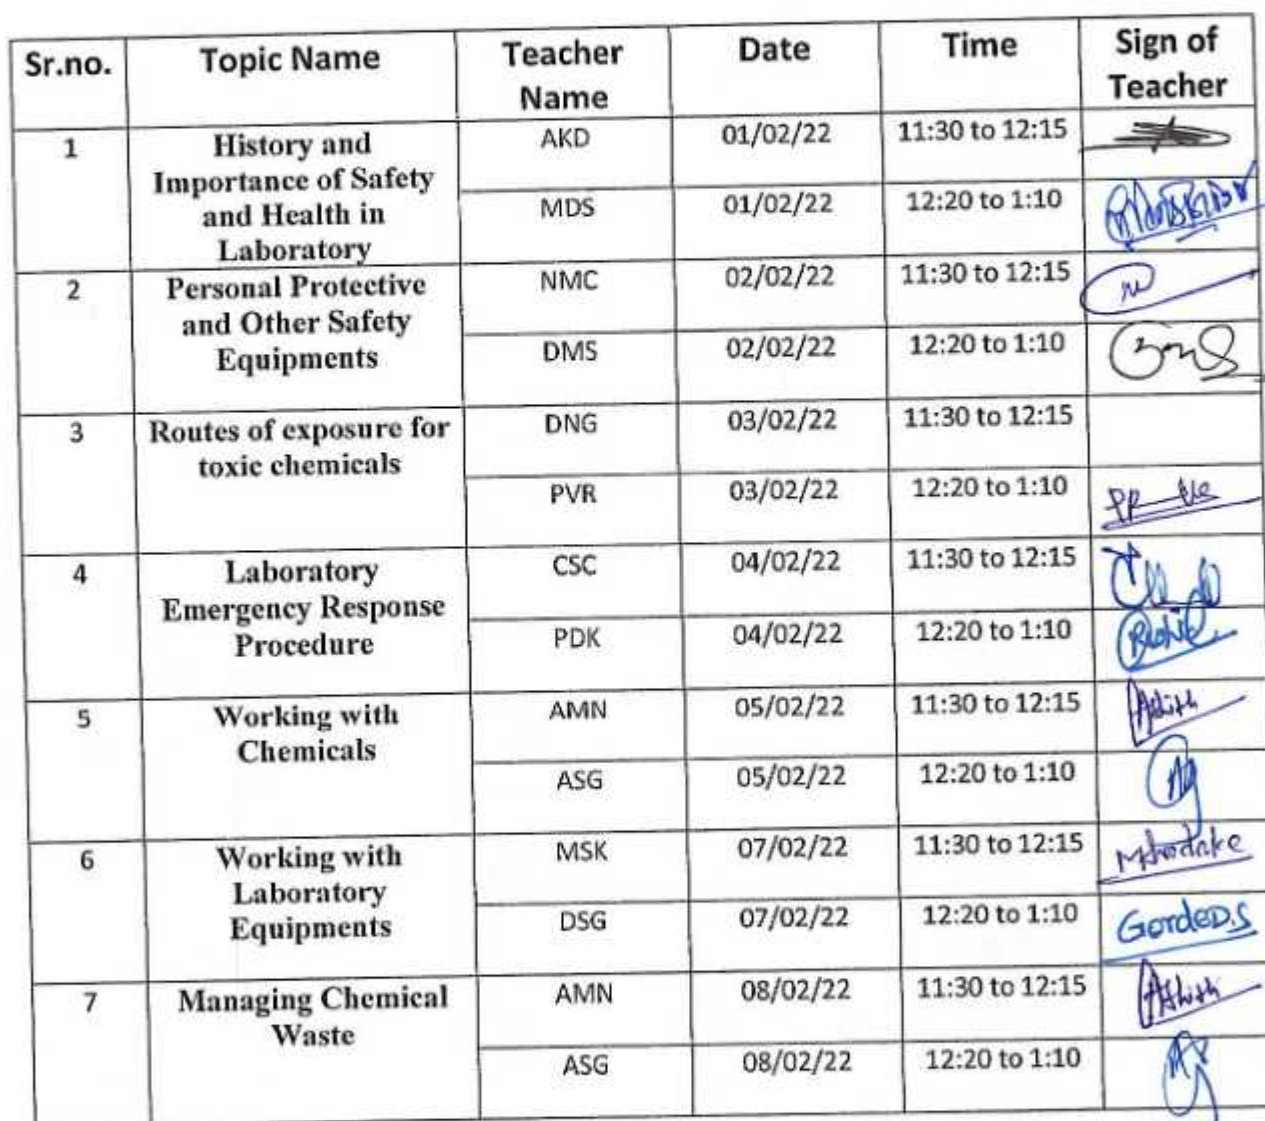 Sr.no. Topic Name Teacher Name Date Time Sign of Teacher
1 History and Importance of Safety and Health in Laboratory AKD 01/02/22 11:30 to 12:15
MDS 01/02/22 12:20 to 1:10
2 Personal Protective and Other Safety Equipments NMC 02/02/22 11:30 to 12:15
DMS 02/02/22 12:20 to 1:10
3 Routes of exposure for toxic chemicals DNG 03/02/22 11:30 to 12:15
PVR 03/02/22 12:20 to 1:10
4 Laboratory Emergency Response Procedure CSC 04/02/22 11:30 to 12:15
PDK 04/02/22 12:20 to 1:10
5 Working with Chemicals AMN 05/02/22 11:30 to 12:15
ASG 05/02/22 12:20 to 1:10
6 Working with Laboratory Equipments MSK 07/02/22 11:30 to 12:15
DSG 07/02/22 12:20 to 1:10 GordeD.S
7 Managing Chemical Waste AMN 08/02/22 11:30 to 12:15
ASG 08/02/22 12:20 to 1:10